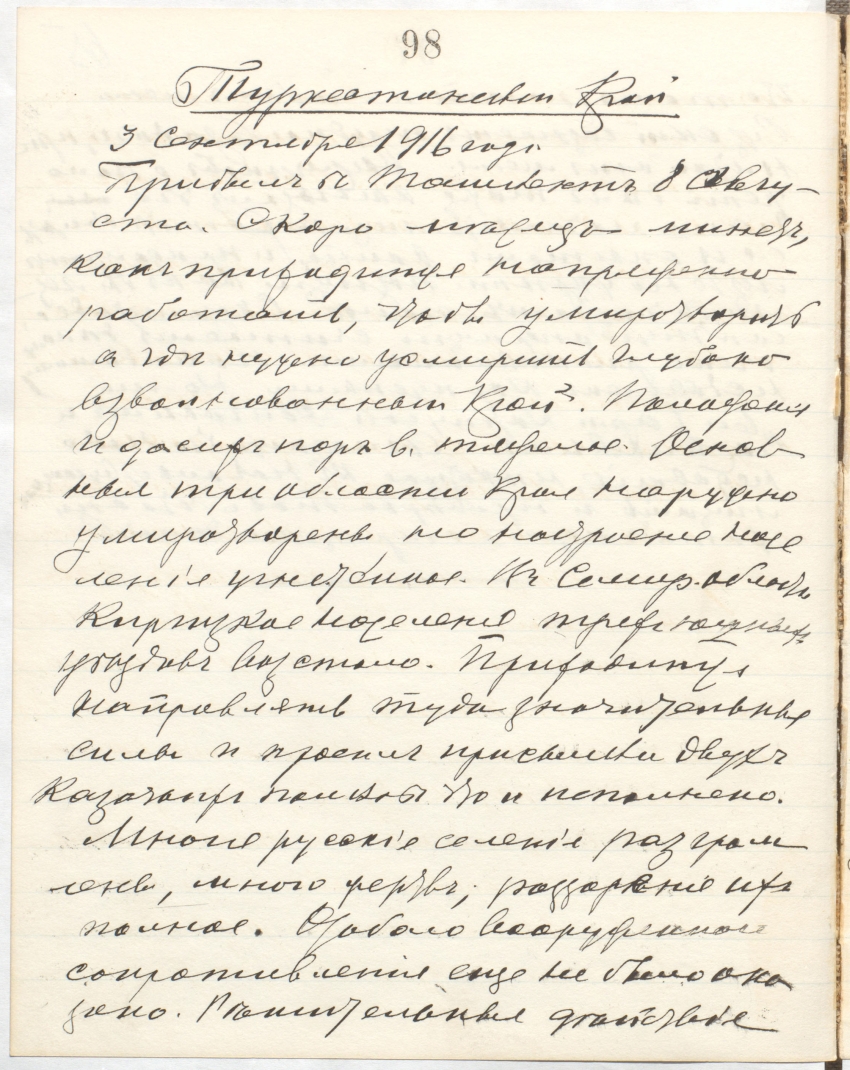 98
Туркестанский Край
3 Сентября 1916 года.
Прибылъ въ Ташкентъ 8 Авгу-
ста. Скоро месяцъ минетъ,
какъ приходится напряженно
работать, чтобы умиротворить
а где нужно усмирить глубоко
взволнованный Край. Положение
и до сихъ поръ в. тяжелое. Основ
ныя три области Края наружно
умиротворены но настроение насе
ленія угнетенное. Въ Семир. области
Киргизкое население трехъ южныхъ
уездовъ возстало. Приходится
направлять туда значительные
силы и просилъ присылки двухъ
Казачьихъ полковъ что и исполнено.
Многие русскіе селенія разгром
лены, много жертвъ, раззорение ихъ
полное. Особаго вооруженного
сопротивления еще не было ока
зано. Решительные действіе